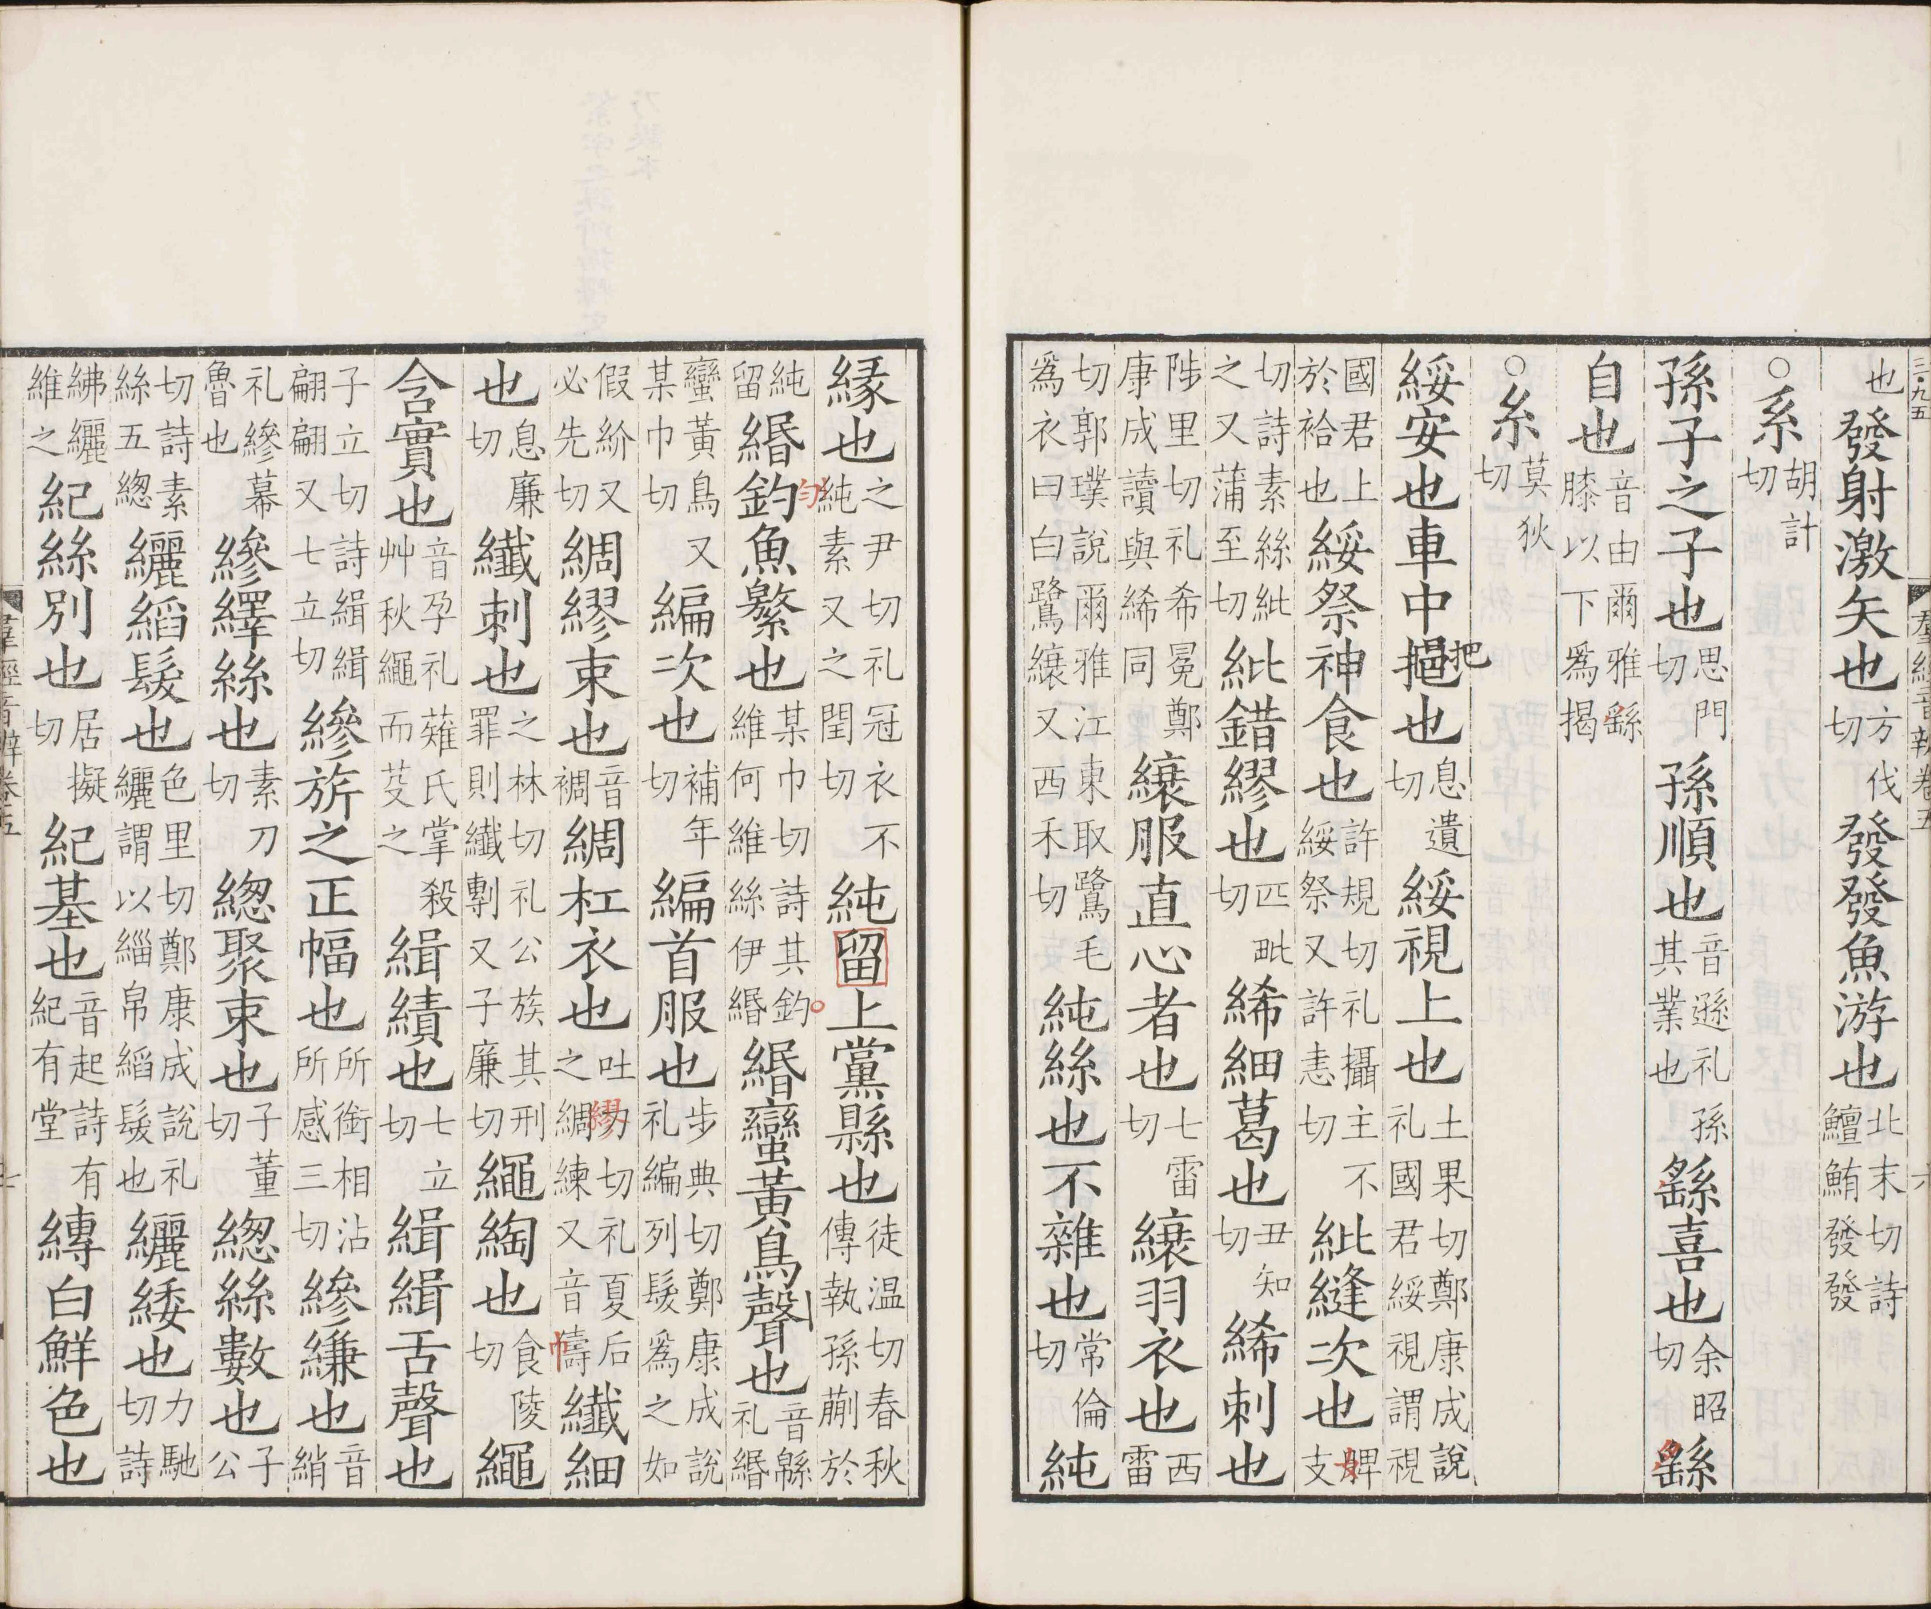 也發射激矢也方伐切發發魚游也北末切詩鱣鮪發發
○系胡計切
孫子之子也思門切孫順也音遜礼孫其業也繇喜也余昭切繇
自也音由爾雅繇膝以下爲揭
○糸莫狄切
綏安也車中挹也息遺切綏視上也土果切鄭康成說礼國君綏視謂視
把
國君上於袷也綏祭神食也許規切礼攝主不綏祭又許恚切紕縫次也婢支
切詩素絲紕之又蒲至切紕錯繆也匹毗切絺細葛也丑知切絺刺也
陟里切礼希冕鄭康成讀與絺同縗服直心者也七雷切縗羽衣也西雷
切郭璞說爾雅江東取鷺毛爲衣曰白鷺縗又西禾切純絲也不雜也常倫切純
緣也之尹切礼冠衣不純素又之閏切純留上黨縣也徒温切春秋傳執孫蒯於
純留緡釣魚繁也某巾切詩其釣維何維絲伊緡緡蠻黃鳥聲也音緜礼緡
勻
蠻黃鳥又某巾切編次也補年切編首服也步典切鄭康成說礼編列髮爲之如
假紒又必先切綢繆束也音裯綢杠衣也吐刀切礼夏后之綢練又音儔纖細
繆
巾
也息廉切纖刺也之林切礼公族其刑罪則纖剸又子廉切繩綯也食陵切繩
含實也音孕礼薙氏掌殺艸秋繩而芟之緝績也七立切緝緝舌聲也
子立切詩緝緝翩翩又七立切縿旂之正幅也所銜相沾所感三切縿縑也音綃
礼縿幕魯也縿繹絲也素刀切緫聚束也子董切緫絲數也子公
切詩素絲五緫纚縚髮也色里切鄭康成說礼纚謂以緇帛縚髮也纚緌也力馳切詩
紼纚維之紀絲別也居擬切紀基也音起詩有紀有堂縳白鮮色也
三·九五
羣經音辨卷五
六
羣經音辨卷五
七